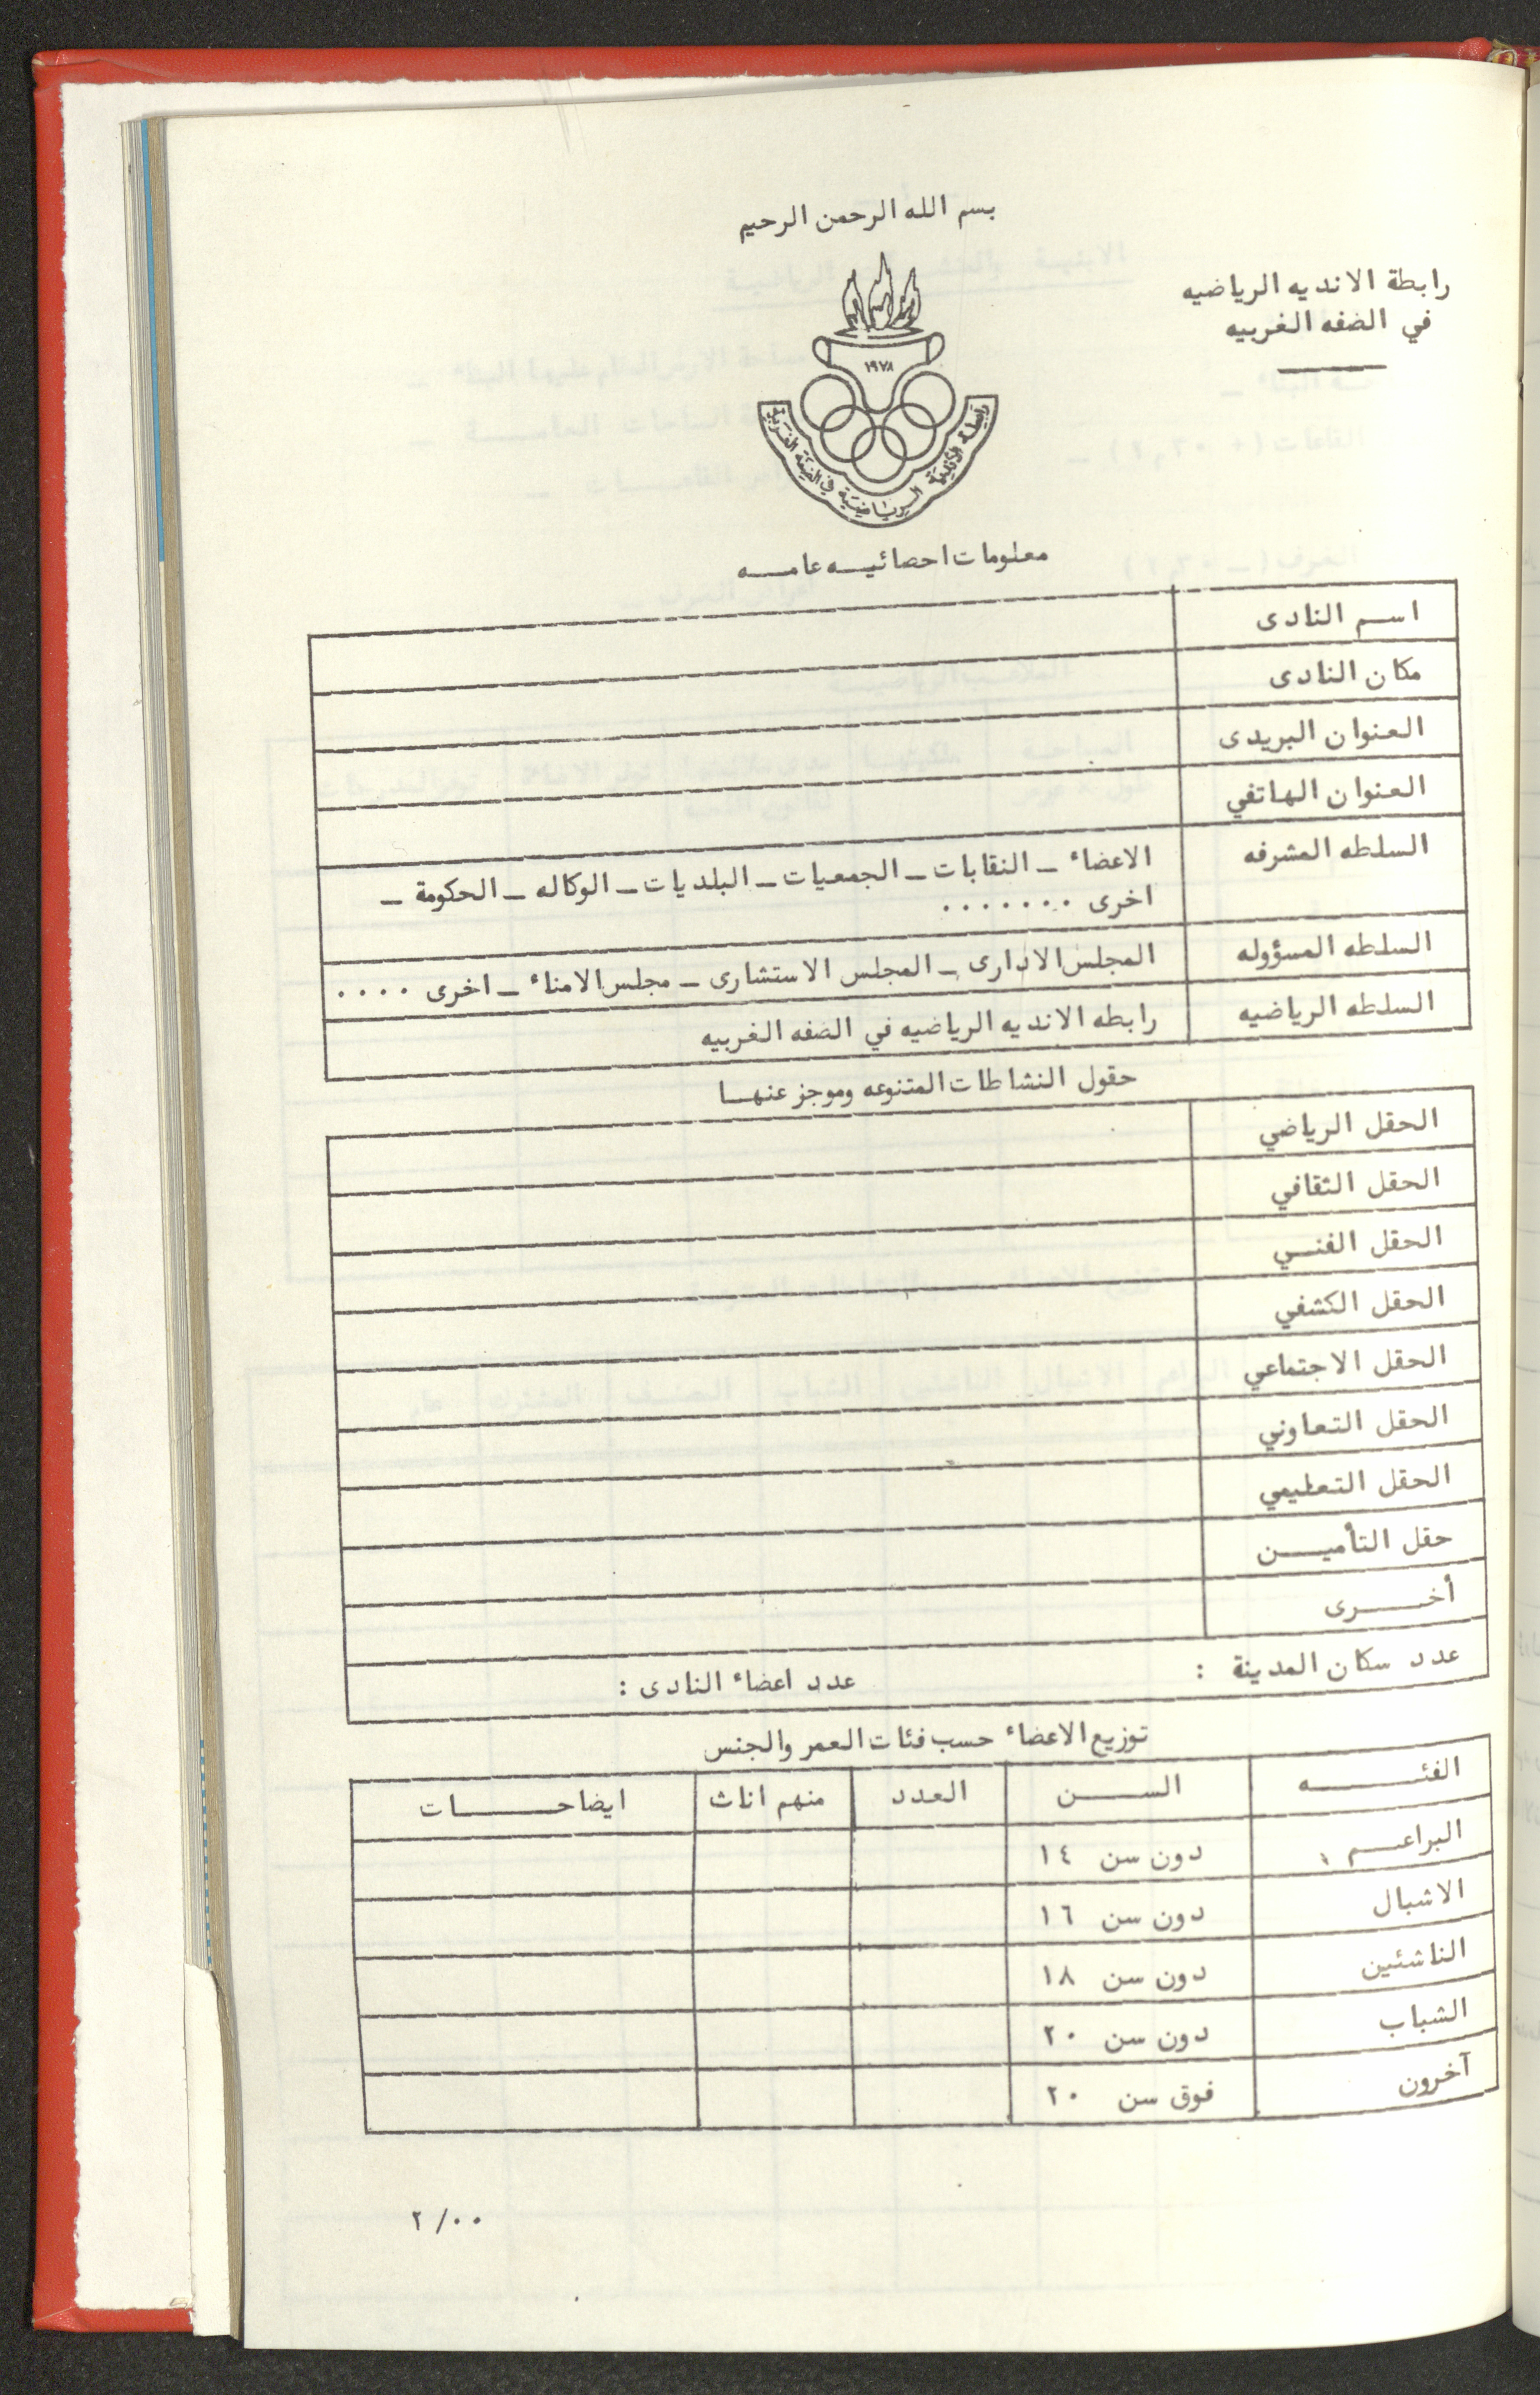 بسم الله الرحمن الرحيم
رابطة الانديه الرياضيه
في الضفه الغربيه
١٩٧٨
رابطة الأندية الرياضية في الضفة الغربية
معلومات احصائيه عامه
اسم النادى
مكان النادى
العنوان البريدى
العنوان الهاتفي
السلطه المشرفه
الاعضاء – النقابات – الجمعيات – البلديات – الوكاله – الحكومة –
اخرى ٠٠٠٠٠٠٠
السلطه المسؤوله
المجلس الادارى – المجلس الاستشارى – مجلس الامناء – اخرى ٠٠٠٠
السلطه الرياضيه
رابطه الانديه الرياضيه في الضفه الغربيه
حقول النشاطات المتنوعه وموجز عنها
الحقل الرياضي
الحقل الثقافي
الحقل الفني
الحقل الكشفي
الحقل الاجتماعي
الحقل التعاوني
الحقل التعليمي
حقل التأمين
أخرى
عدد سكان المدينة : عدد اعضاء النادى :
توزيع الاعضاء حسب فئات العمر والجنس
الفئه السن العدد منهم اناث ايضاحات
البراعم دون سن ١٤
الاشبال دون سن ١٦
الناشئين دون سن ١٨
الشباب دون سن ٢٠
آخرون فوق سن ٢٠
٢/٠٠